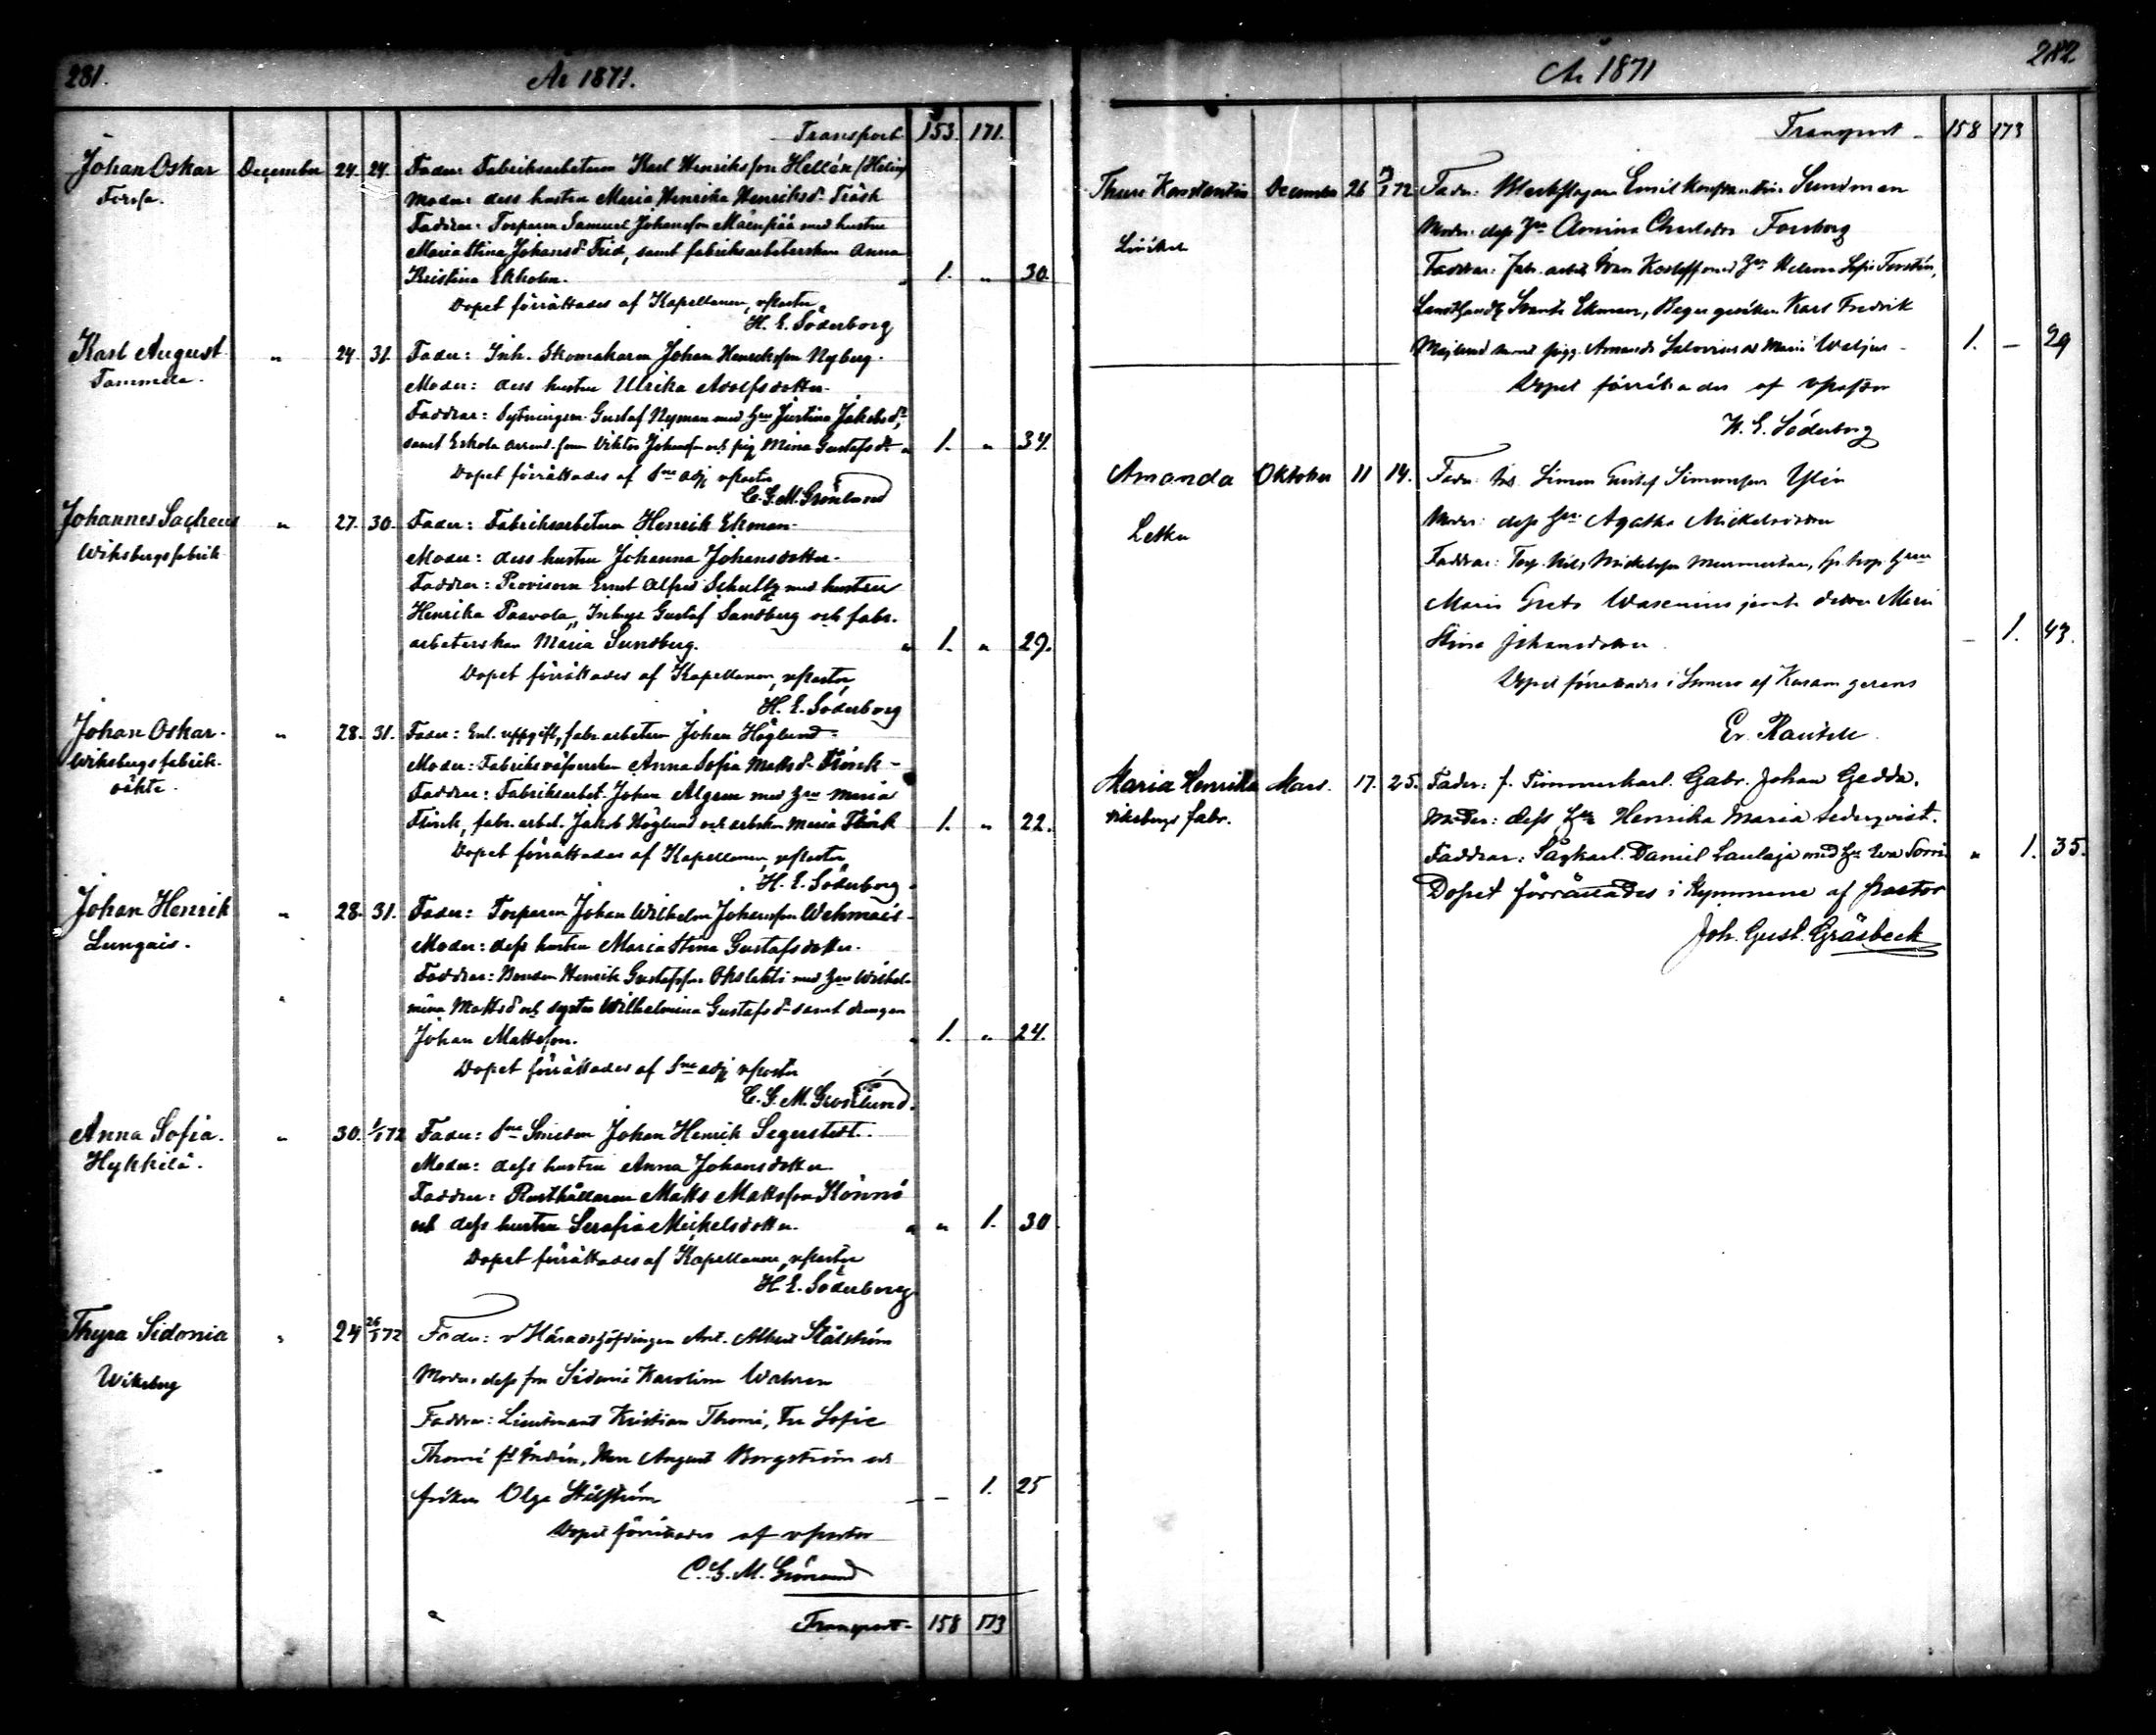 281.
År 1871.
Transport 153. 171.
Johan Oskar December 24. 24. Fader: Fabriksarbetaren Karl Henriksson Hellén
Forssa. Moder: dess hustru Maria Henrika Henriksd:r Träsk
Faddrar: Torparen Samuel Johansson Mäenpää med hustru
Maria Stina Johansd:r Frid, samt fabriksarbeterskan Anna
Kristina Ekholm. " 1. " 30.
Dopet förrättades af Kapellanen, vPastor,
H. E. Söderborg
Karl August " 24. 31. Fader: Inh. Skomakaren Johan Henriksson Nyberg.
Tammela. Moder: dess hustru Ulrika Adolfsdotter.
Faddrar: Sytningsm. Gustaf Nyman med h:ru Justina Jakobsd:r,
samt Eskola arrend. son Viktor Johansson och pig. Mina Gustafsd:r " 1. " 34.
Dopet förrättades af S:ne adj. vPastor
C. G. M. Grönlund
Johannes Sacheus " 27. 30. Fader: Fabriksarbetaren Henrik Ekman.
Wiksbergs fabrik Moder: dess hustru Johanna Johansdotter.
Faddrar: Provisorn Ernst Alfred Schultz med hustru
Henrika Paavola, Inhys. Gustaf Sandberg och fabr.
arbeterskan Maria Sundberg. " 1. " 29.
Dopet förrättades af Kapellanen, vPastor,
H. E. Söderborg
Johan Oskar. " 28. 31. Fader: Enl. uppgift, fabr. arbetaren Johan Höglund.
Wiksbergs fabrik. Moder: Fabriksväfverskan Anna Sofia Mattsd:r Flink
oäkta. Faddrar: Fabriksarbet. Johan Algren med h:ru Maria
Flink, fabr. arbet. Jakob Höglund och arbskan Maria Flink 1. " 22.
Dopet förrättades af Kapellanen, vPastor,
H. E. Söderborg.
Johan Henrik " 28. 31. Fader: Torparen Johan Wilhelm Johansson Wehmais
Lungais. Moder: dess hustru Maria Stina Gustafsdotter.
Faddrar: Bonden Henrik Gustafsson Okslahti med h:ru Wilhel-
mina Mattsd:r och syster Wilhelmina Gustafsd:r samt drengen
Johan Mattsson. " 1. " 24.
Dopet förrättades af S:ne adj. vPastor
C. G. M. Grönlund.
Anna Sofia. " 30. 1/1 72 Fader: S:ne Smeden Johan Henrik Segerstedt.
Hykkilä. Moder: dess hustru Anna Johansdotter
Faddrar: Rusthållaren Matts Mattsson Könnö
och dess hustru Serafia Mickelsdotter. " " 1. 30
Dopet förrättades af Kapellanen, vPastor
H. E. Söderborg
Thyra Sidonia " 24 26/1 72 Fader: v Häradshöfdingen Ant. Albert Stålström
Wiksberg Moder: dess fru Sidonie Karolina Wahren
Faddrar: Lieutnant Kristian Thomé, Fru Sofie
Thomé, Herr August Borgström och
fröken Olga Stålström — 1. 25
Dopet förrättades af vPastor
C. G. M. Grönlund
Transport 158 173
282.
År 1871
Transport 158 173
Thure Konstantin December 26 /1 72 Fader: Bleckslagaren Emil Konstantin Sundman
Moder: dess h:ru Amina Charlotta Forsborg
Faddrar: Fabr. arbet. Ivan Kosloff med h:ru Helena Sofia Forstén,
Svante Ekman, Karl Fredrik
Majlund samt pig. Amanda Salovius och Maria Weljus 1. — 29
Dopet förrättades af vPastor
H. E. Söderborg
Amanda Oktober 11 14. Fader: Simon Gustaf Simonsson Ylén
Letku Moder: dess h:ru Agatha Mickelsdotter
Faddrar: Torp. Nils Mickelsson
Maria Greta Wasenius jemte dotter Maria
Stina Johansdotter — 1. 43.
Dopet förrättades i Somero af
Er. Rautell
Maria Henrika Mars. 17. 25. Fader: f. Timmerkarl. Gabr. Johan Gedda.
Wiksbergs fabr. Moder: dess h:ru Henrika Maria Sederqvist.
Faddrar: Sågkarl. Daniel Laulaja med h:ru Eva Sorri " 1. 35.
Dopet förrättades i Kymmene af Pastor
Joh. Gust. Gräsbeck